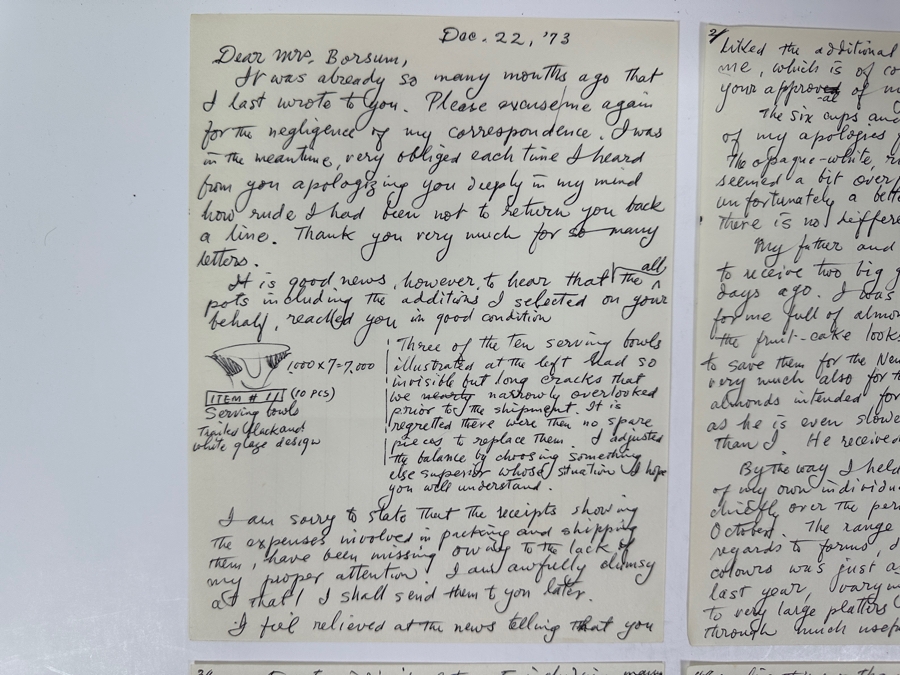 Dec. 22, '73
Dear Mrs. Borsum,
It was already so many months ago that
I last wrote to you. Please excuse me again
for the negligence of my correspondence. I was
in the meantime, very obliged each time I heard
from you apologizing you deeply in my mind
how rude I had been not to return you back
a line. Thank you very much for so many
letters.
It is good news, however, to hear that all the
pots including the additions I selected on your
behalf, reached you in good condition
1,000 x 7 = 7,000
ITEM # 11 (10 PCS)
Serving bowls
Trailed black and
white glaze design
Three of the Ten serving bowls
illustrated at the left had so
invisible but long cracks that
we nearly narrowly overlooked
prior to the shipment. It is
regretted there were then no spare
pieces to replace them. I adjusted
the balance by choosing something
else superior whose situation I hope
you well understand.
I am sorry to state that the receipts showing
the expenses involved in packing and shipping
them, have been missing owing to the lack of
my proper attention. I am awfully clumsy
at that! I shall send them to you later.
I feel relieved at the news telling that you
2/
liked the additional
me, which is of co
your approved -al of m
The six cups and
of my apologies f
The opaque-white, ri
seemed a bit over f
unfortunately a bette
there is no differe
My father and
to receive two big g
days ago. I was
for me full of almon
the fruit-cake looks
to save them for the New
very much also for th
almonds intended for
as he is even slowe
than I. He received
By the way I held
of my own individu
chiefly over the per
October. The range
regards to forms, d
colours was just a
last year, varyin
to very large platters
through much usef
3/